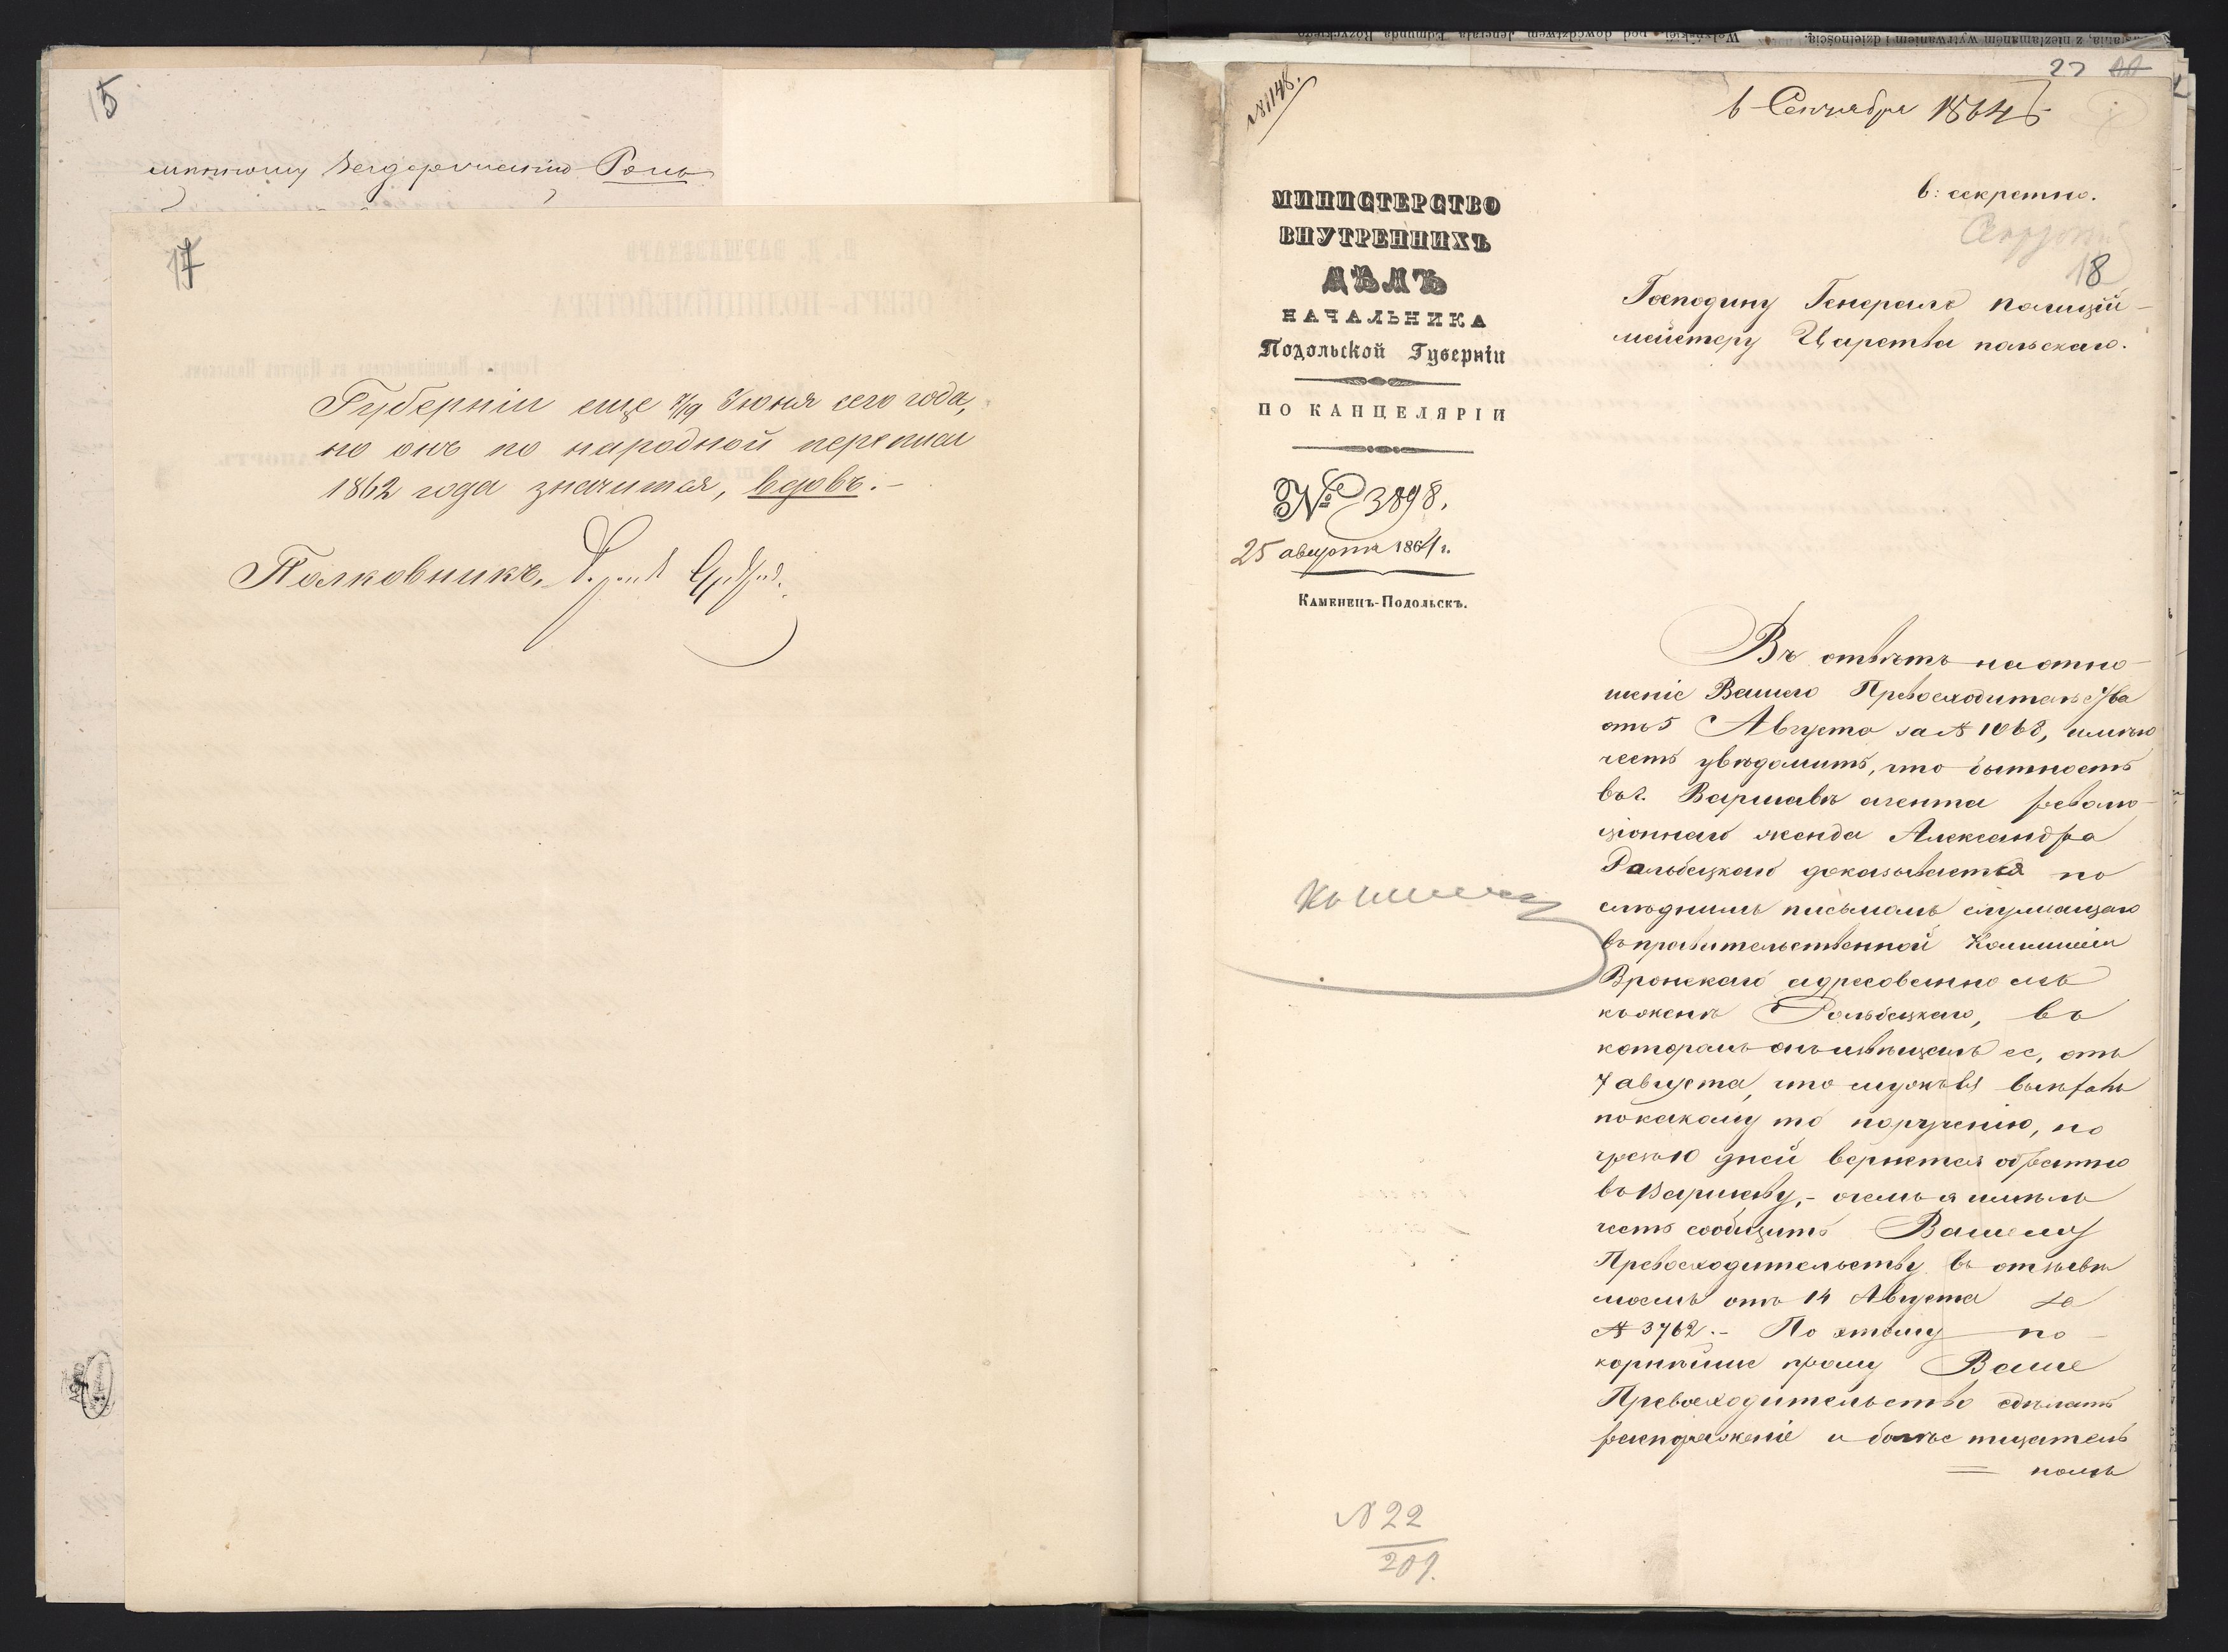 15
17
Губерніи еще 7/19 Іюня сего года,
но онъ по народной переписи
1862 года значится, вдовъ.-
Полковникъ,
№1148.
22
6 Сентября 1864
в: секретно.
18
МИНИСТЕРСТВО
ВНУТРЕННИХЪ
ДѢЛЪ
НАЧАЛЬНИКА
Подольской Губерніи
ПО КАНЦЕЛЯРІИ
№ 3898.
25 августа 1864 г.
Каменецъ-Подольскъ.
Господину Генералъ Полицій-
мейстеру Царства польскаго.
Въ отвѣтъ на отно-
шеніе Вашего Превосходительства
отъ 5 Августа за № 1068, имѣю
честь увѣдомить, что бытность
въ г. Варшавѣ агента револю-
ціоннаго жонда Александра
Рольбецкаго доказывается по
слѣднимъ письмомъ служащаго
въ правительственной Коммисіи
Вронскаго адресованномъ
къ женѣ Рольбецкаго, въ
которомъ онъ извѣщалъ ее, отъ
7 августа, что мужъ ея выѣхалъ
по какому то порученію, но
чрезъ 10 дней вернется обратно
въ Варшаву,- о чемъ я имѣлъ
честь сообщить Вашему
Превосходительству въ отзывѣ
моемъ отъ 14 Августа за
№ 3762.- По этому по-
корнѣйше прошу Ваше
Превосходительство сдѣлать
распоряженіе и болѣе тщатель
номъ
№ 22
201.